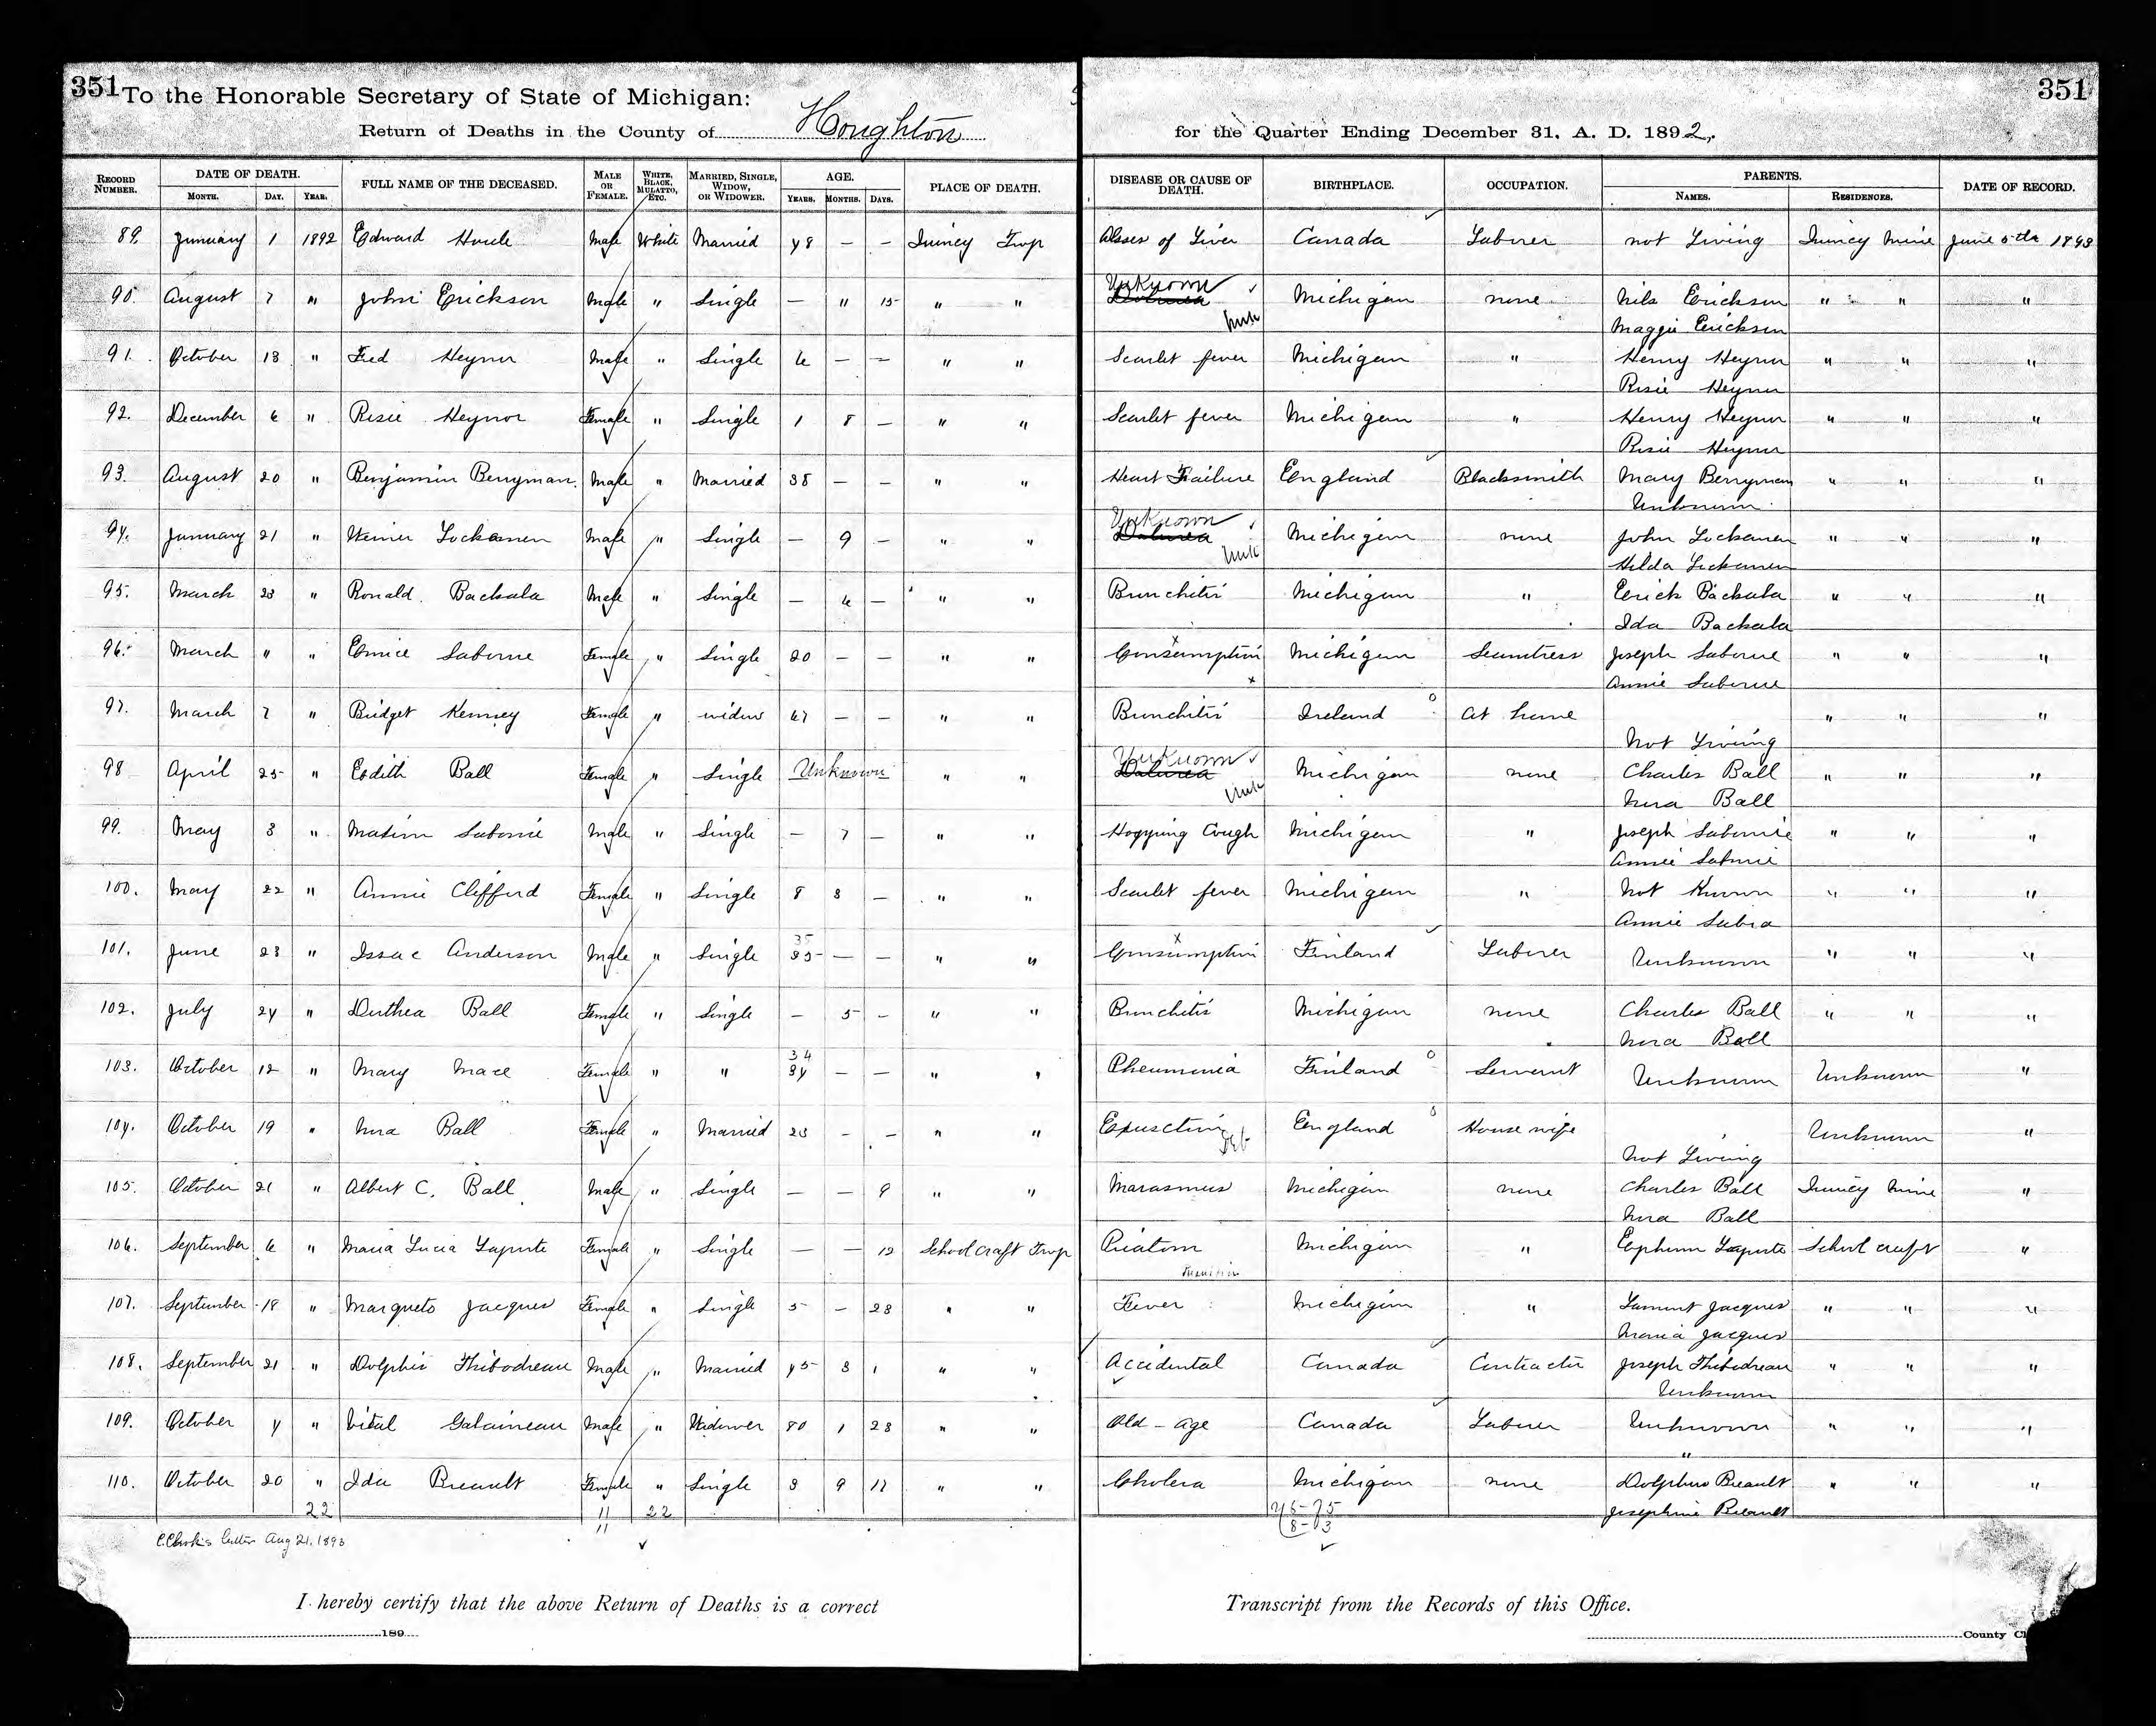 351 To the Honorable Secretary of State of Michigan: 351
Return of Deaths in the County of Houghton for the Quarter Ending December 31, A. D. 1892.
RECORD NUMBER. DATE OF DEATH. MONTH. DAY. YEAR. FULL NAME OF THE DECEASED. MALE OR FEMALE. WHITE, BLACK, MULATTO, ETC. MARRIED, SINGLE, WIDOW, OR WIDOWER. AGE. YEARS. MONTHS. DAYS. PLACE OF DEATH. DISEASE OR CAUSE OF DEATH. BIRTHPLACE. OCCUPATION. PARENTS. NAMES. RESIDENCES. DATE OF RECORD.
89. January 1 1892 Edward Houle Male White Married 48 — — Quincy Twp Abses of Liver Canada Laborer not Living Quincy Mine June 5th 1893
90. August 7 " John Erickson Male " Single — " 15 " " Unknown Michigan none Nils Erickson " " "
Maggie Erickson
91. October 13 " Fred Heynor Male " Single 6 — — " " Scarlet fever Michigan " Henry Heynor " " "
Rosie Heynor
92. December 6 " Rosie Heynor Female " Single 1 8 — " " Scarlet fever Michigan " Henry Heynor " " "
Rosie Heynor
93. August 20 " Benjamin Berryman. Male " Married 38 — — " " Heart Failure England Blacksmith Mary Berryman " " "
Unknown
94. January 21 " Weiner Lockanen Male " Single — 9 — " " Unknown Michigan none John Lockanen " " "
Hilda Lockanen
95. March 23 " Ronald Backala Male " Single — 6 — " " Bronchitis Michigan " Erick Backala " " "
Ida Backala
96. March " " Eunice Saborne Female " Single 20 — — " " Consumption Michigan Seamtress Joseph Saborne " " "
Annie Saborne
97. March 7 " Bridget Kenney Female " widow 67 — — " " Bronchitis Ireland At home " " "
Not Living
98 April 25 " Edith Ball Female " Single Unknown " " Unknown Michigan none Charles Ball " " "
Nora Ball
99. May 3 " Maxim Saborie Male " Single — 7 — " " Hopping Cough Michigan " Joseph Saborie " " "
Annie Saborie
100. May 22 " Annie Clifford Female " Single 8 3 — " " Scarlet fever Michigan " Not Known " " "
Annie Sabra
101. June 23 " Issac Anderson Male " Single 35 — — " " Consumption Finland Laborer Unknown " " "
102. July 24 " Dorthea Ball Female " Single — 5 — " " Bronchitis Michigan none Charles Ball " " "
Nora Ball
103. October 12 " Mary Mace Female " " 34 — — " " Pheumonia Finland Servant Unknown Unknown "
104. October 19 " Nora Ball Female " Married 23 — — " " England House wife Unknown "
Not Living
105. October 21 " Albert C. Ball Male " Single — — 9 " " Marasmus Michigan none Charles Ball Quincy Mine "
Nora Ball
106. September 6 " Maria Lucia Laporte Female " Single — — 12 School craft Twp Michigan " Ephrem Laporte School craft "
107. September 18 " Marqueto Jacques Female " Single 5 — 28 " " Fever Michigan " Jacques " " "
Maria Jacques
108. September 21 " Dolphis Thibodreau Male " Married 45 3 1 " " Accidental Canada Contractor Joseph Thibodreau " " "
Unknown
109. October 4 " Vital Galaineau Male " Widower 80 1 23 " " Old - age Canada Laborer Unknown " " "
"
110. October 20 " Ida Breault Female " Single 3 9 17 " " Cholera Michigan none Dolphus Breault " " "
Josephine Breault
22 11 22
11
Aug 21, 1893
I hereby certify that the above Return of Deaths is a correct Transcript from the Records of this Office.
189 County Cl